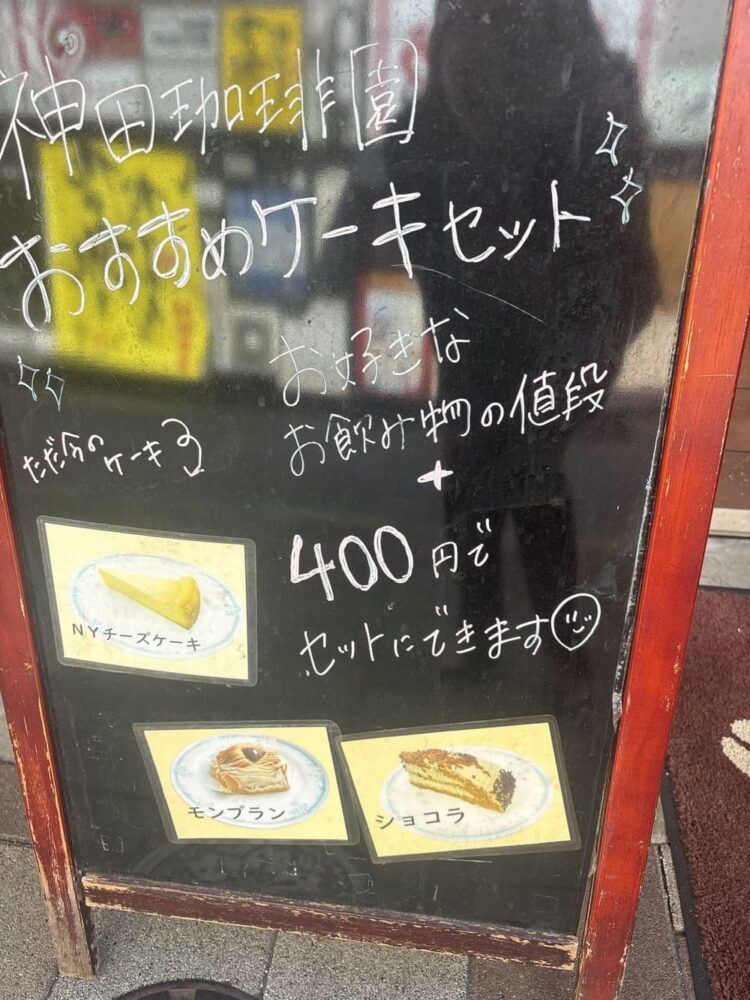 神田珈琲園
おすすめケーキセット
お好きな
お飲み物の値段
+
400円で
セットにできます
ただ今の
ケーキ
NYチーズケーキ
モンブラン
ショコラ